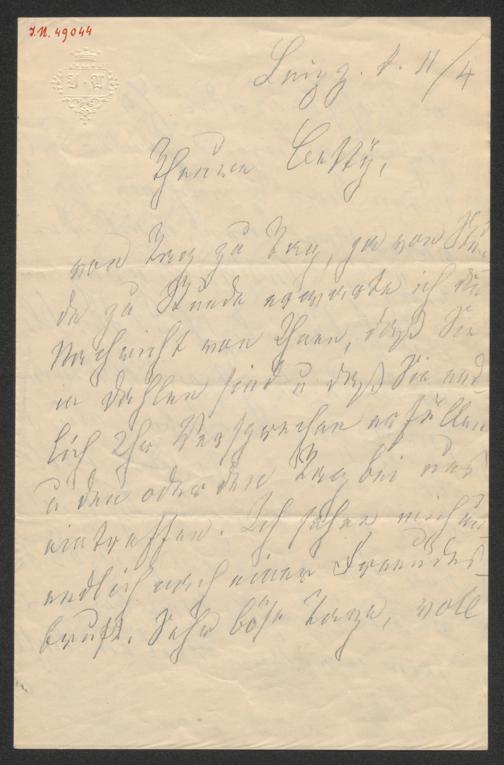 J.N. 49044
Leipz. d. 11/4
Theure Betty,
von Tag zu Tag, ja von Stun
de zu Stunde erwarte ich die
Nachricht von Ihnen, daß Sie
in Dahlen sind u daß Sie end
lich Ihr Versprechen erfüllen
u den oder den Tag bei uns
eintreffen. Ich sehne mich un
endlich nach einer Freundes
brust. Sehr böse Tage, voll